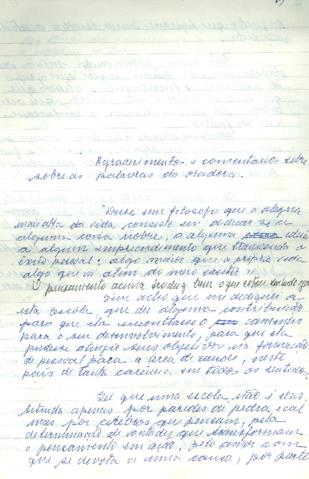 Agradecimentos e comentários sobre
sobre as palavras da oradora.
"Disse um filósofo que a alegria
mais alta da vida consiste em dedicar-se a
alguma coisa nobre, a alguma ideia
a algum empreendimento que transcenda o
êxito pessoal; algo maior que a própria vida
algo que vá além do meio
O pensamento acima traduz bem o que estou
Eu acho que me dediquei a
esta escola, que dei alguma contribuição
para que ela encontrasse o caminho
para o seu desenvolvimento, para que ela
pudesse atingir seus objetivos na formação
de pessoal para a área de saúde, neste
país de tanta carência em todos os sentidos.
Sei que uma escola não é cons
tituída apenas por paredes de pedra e cal
mas por cérebros que pensam, pela
determinação de vontades que transformam
o pensamento em ação, pelo amor com
que se devota a uma causa, por parte